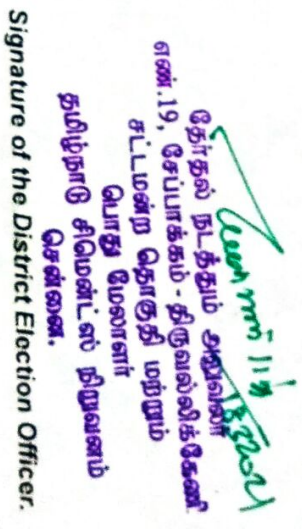 தேர்தல் நடத்தும் அலுவலர்
எண்.19, சேப்பாக்கம் - திருவல்லிக்கேணி
சட்டமன்ற தொகுதி மற்றும்
பொது மேலாளர்
தமிழ்நாடு சிமெண்ட்ஸ் நிறுவனம்
சென்னை.
Signature of the District Election Officer.